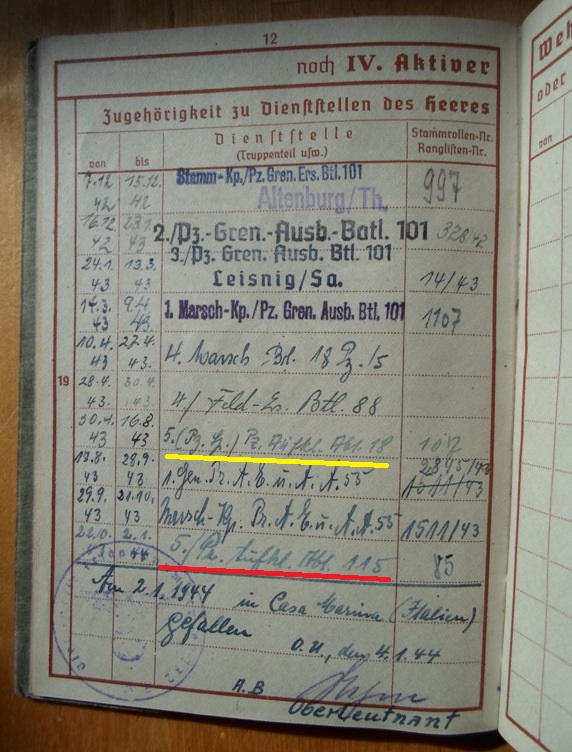 12
noch IV. Aktiver
Zugehörigkeit zu Dienststellen des Heeres
von bis Dienststelle (Truppenteil usw.) Stammrollen-Nr. Ranglisten-Nr.
7.12 42 15.12. 42 Stamm-Kp./Pz. Gren. Ers. Btl. 101 Altenburg/Th. 997
16.12. 42 23.1. 43 2./Pz.-Gren.-Ausb.-Batl. 101 328/42
24.1. 43 13.3. 43 3./Pz. Gren. Ausb. Btl. 101 Leisnig/Sa. 14/43
14.3. 43 9.4. 43 1. Marsch-Kp./Pz. Gren. Ausb. Btl. 101 1107
10.4. 43 27.4. 43. 4. Marsch Btl. 18 Pz./5
19
28.4. 43. 30.4. 43. 4/ Feld-Ers. Btl. 88
30.4. 43 16.8. 43 5. (Pz. ) Pz. Aufkl. Abt. 18 107
17.8. 43 28.9. 43 1. Gen. Pr. A. E. u. A. A. 55 2845/43
29.9. 43 21.10. 43 Marsch-Kp. Pr. A. E. u. A. A. 55 1511/43
22.10. 2.1. 44 5./Pz. Aufkl. Abt. 115 85
Am 2.1.1944 in Casa Marina (Italien)
gefallen
O.U., den 4.1.44
A.B
Oberleutnant
Weh
oder
von